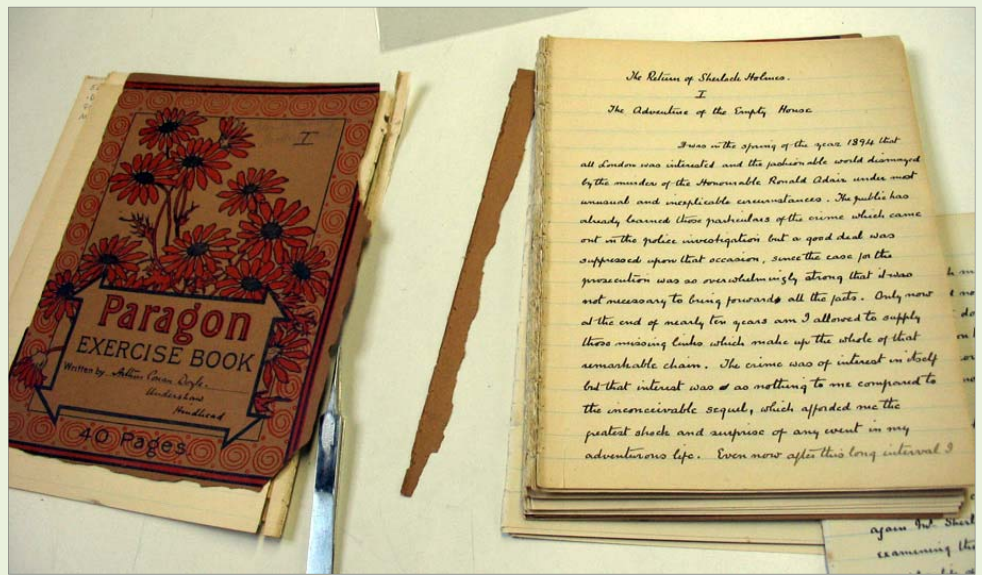 I
Paragon
EXERCISE BOOK
Written by Arthur Conan Doyle.
Undershaw
Hindhead
40 Pages.
The Return of Sherlock Holmes.
I
The Adventure of the Empty House
It was in the spring of the year 1894 that
all London was interested and the fashionable world dismayed
by the murder of the Honourable Ronald Adair under most
unusual and inexplicable circumstances. The public has
already learned those particulars of the crime which came
out in the police investigation but a good deal was
suppressed upon that occasion, since the case for the
prosecution was so overwhelmingly strong that it was
not necessary to bring forward all the facts. Only now
at the end of nearly ten years am I allowed to supply
those missing links which make up the whole of that
remarkable chain. The crime was of interest in itself
but that interest was as nothing to me compared to
the inconceivable sequel, which afforded me the
greatest shock and surprise of any event in my
adventurous life. Even now after this long interval I
again Mr. Sherl
examining the